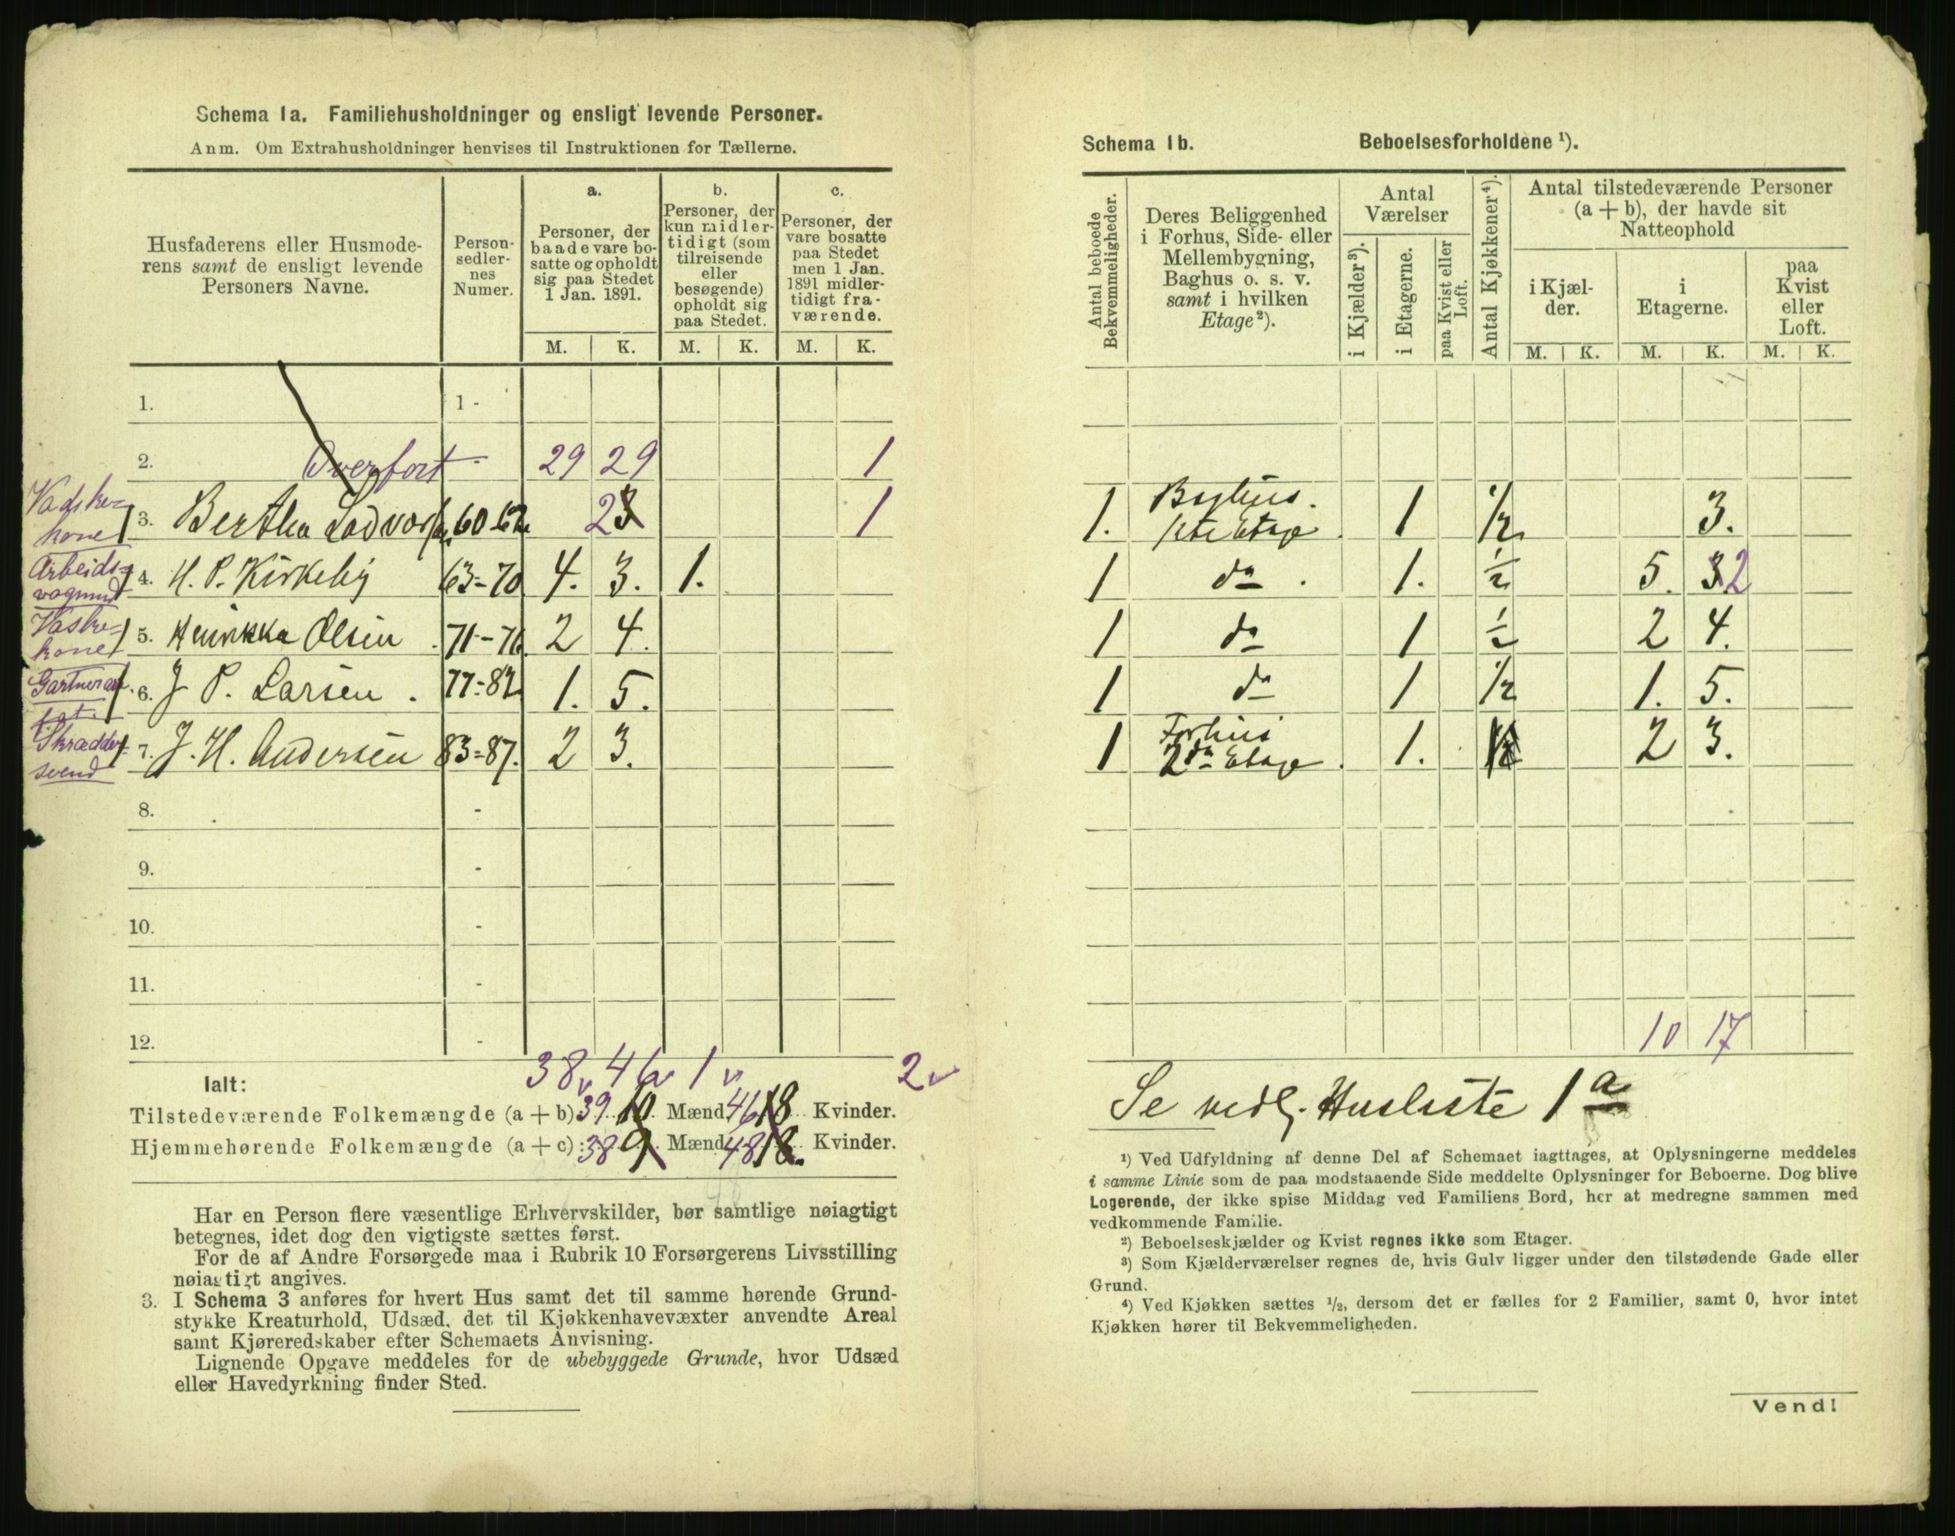 Schema 1a. Familiehusholdninger og ensligt levende Personer.
Anm. Om Extrahusholdninger henvises til Instruktionen for Tællerne.
Husfaderens eller Husmode-
rens samt de ensligt levende
Personers Navne.
Person-
sedler-
nes
Numer.
a.
Personer, der
baade vare bo-
satte og opholdt
sig paa Stedet
1 Jan. 1891.
b.
Personer, der
kun midler-
tidigt (som
tilreisende
eller
besøgende)
opholdt sig
paa Stedet.
c.
Personer, der
vare bosatte
paa Stedet
men 1 Jan.
1891 midler-
tidigt fra-
værende.
M. K. M. K. M. K.
1. 1 -
2. Overført - 29 29 1
Vadske-
kone 3. Bertha 60-62 2 3 1
Arbeids-
vogmand 4. H. P. Kirkeby 63-70 4. 3. 1.
Vaske-
kone 5. Olsen 71-76 2 4.
Gartner 6. J P. Larsen. 77-82 1. 5.
Skrædder-
svend 7. J. H. Andersen 83-87. 2 3.
8. -
9. -
10. -
11. -
12. -
38 46 1 2
Ialt:
Tilstedeværende Folkemængde (a + b): 39 10 Mænd 46 18 Kvinder.
Hjemmehørende Folkemængde (a + c): 38 9 Mænd 48 18. Kvinder.
Har en Person flere væsentlige Erhvervskilder, bør samtlige nøiagtigt
betegnes, idet dog den vigtigste sættes først.
For de af Andre Forsørgede maa i Rubrik 10 Forsørgerens Livsstilling
nøiagtigt angives.
3. I Schema 3 anføres for hvert Hus samt det til samme hørende Grund-
stykke Kreaturhold, Udsæd, det til Kjøkkenhavevæxter anvendte Areal
samt Kjøreredskaber efter Schemaets Anvisning.
Lignende Opgave meddeles for de ubebyggede Grunde, hvor Udsæd
eller Havedyrkning finder Sted.
Schema 1b. Beboelsesforholdene ¹).
Antal beboede
Bekvemmeligheder.
Deres Beliggenhed
i Forhus, Side- eller
Mellembygning,
Baghus o. s. v.
samt i hvilken
Etage²).
Antal
Værelser
i Kjælder³).
i Etagerne.
paa Kvist eller
Loft.
Antal Kjøkkener⁴).
Antal tilstedeværende Personer
(a + b), der havde sit
Natteophold
i Kjæl-
der.
i
Etagerne.
paa
Kvist
eller
Loft.
M. K. M. K. M. K.
1. Baghus.
1ste Etage. 1 1/2 3.
1 do. 1. 1/2 5. 3 2
1 do 1 1/2 2 4.
1 do 1 1/2 1. 5.
1 Forhus
2den Etage. 1. 2 3.
10 17
Se vedl. Husliste 1 a
¹) Ved Udfyldning af denne Del af Schemaet iagttages, at Oplysningerne meddeles
i samme Linie som de paa modstaaende Side meddelte Oplysninger for Beboerne. Dog blive
Logerende, der ikke spise Middag ved Familiens Bord, her at medregne sammen med
vedkommende Familie.
²) Beboelseskjælder og Kvist regnes ikke som Etager.
³) Som Kjælderværelser regnes de, hvis Gulv ligger under den tilstødende Gade eller
Grund.
⁴) Ved Kjøkken sættes 1/2, dersom det er fælles for 2 Familier, samt 0, hvor intet
Kjøkken hører til Bekvemmeligheden.
Vend!